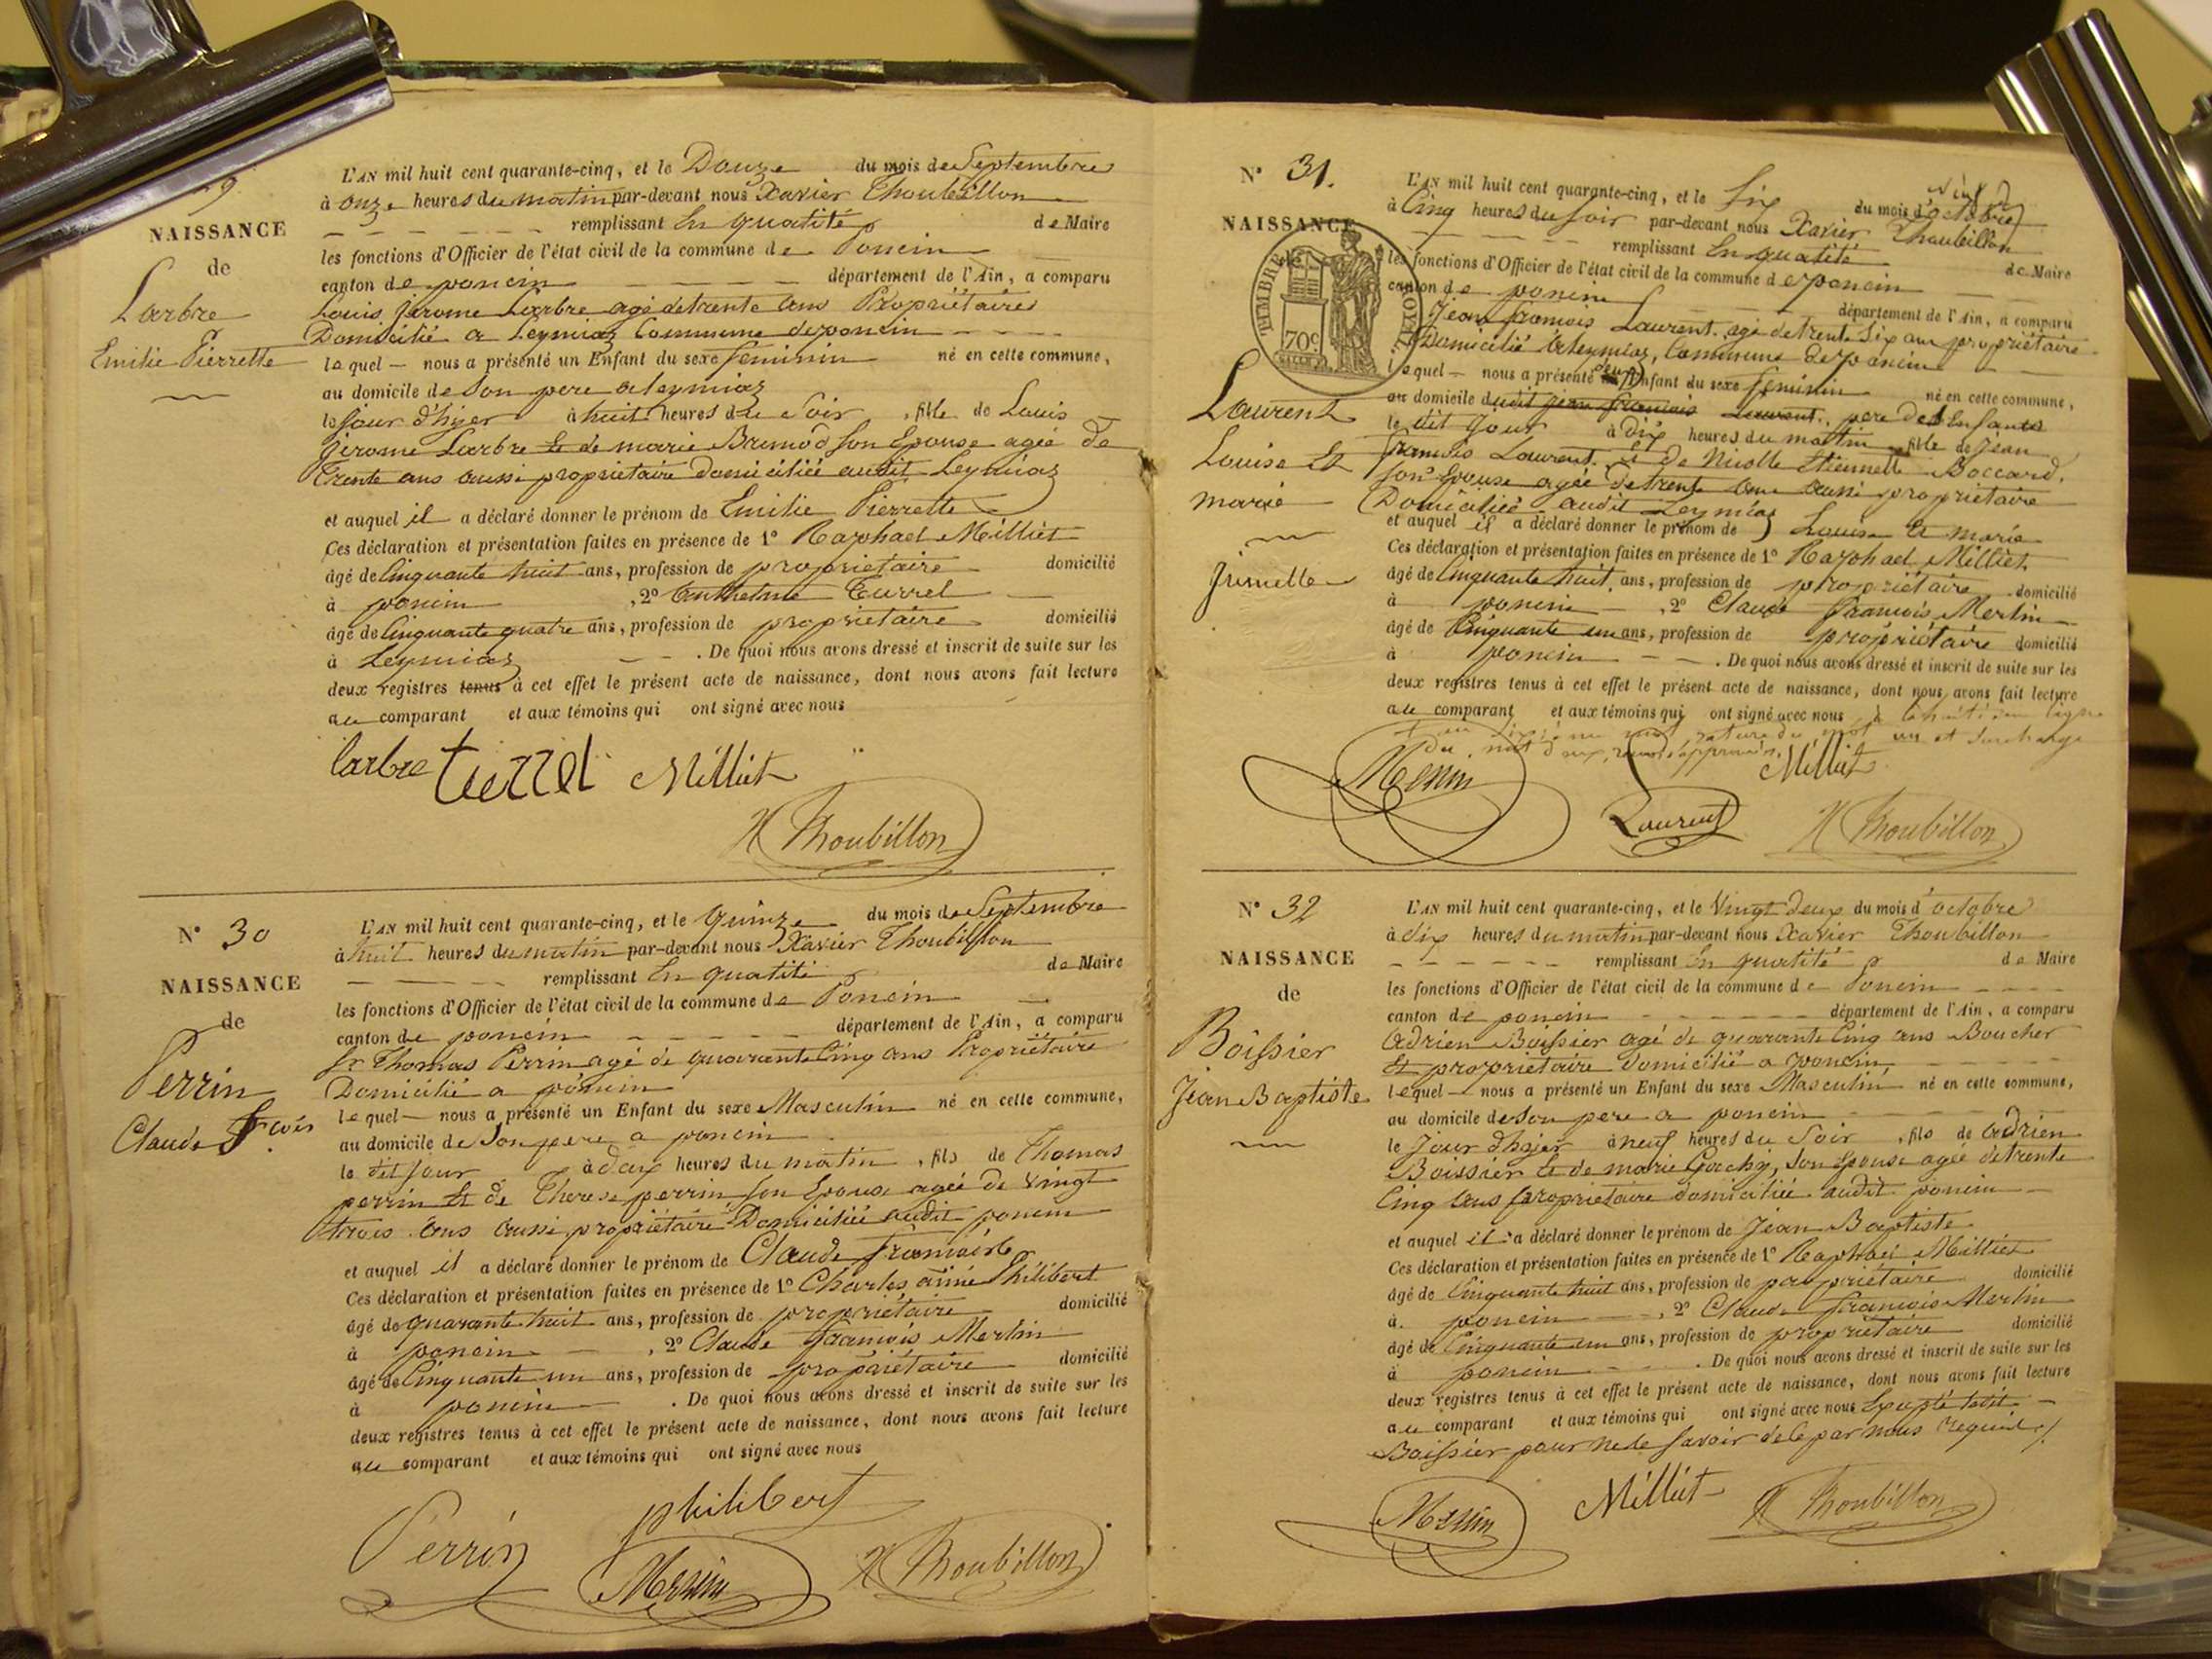 9
NAISSANCE
de
Larbre
Emilie Pierrette
L'AN mil huit cent quarante-cinq, et le Douze du mois de Septembre
à onze heures du matin par-devant nous Xavier Thoubillon
remplissant En qualité de Maire
les fonctions d'Officier de l'état civil de la commune de Poncin
canton de poncin département de l'Ain, a comparu
Louis jerome Larbre agé de trente ans Propriétaire
Domicilié a Leymiaz Commune de poncin
lequel nous a présenté un Enfant du sexe feminin né en cette commune,
au domicile de Son pere a leymiaz
le jour d'hyer à huit heures du Soir, fille de Louis
jerome Larbre Et de marie Brunod son Epouse agée de
Trente ans aussi propriétaire domiciliée audit Leymiaz
et auquel il a déclaré donner le prénom de Emilie Pierrette
Ces déclaration et présentation faites en présence de 1º Raphael Milliet
âgé de Cinquante huit ans, profession de propriétaire domicilié
à poncin, 2º Anthelme Turrel
âgé de Cinquante quatre ans, profession de propriétaire domicilié
à Leymiaz. De quoi nous avons dressé et inscrit de suite sur les
deux registres tenus à cet effet le présent acte de naissance, dont nous avons fait lecture
au comparant et aux témoins qui ont signé avec nous
larbre turrel Milliet
X Thoubillon
Nº 30
NAISSANCE
de
Perrin
Claude fcois
L'AN mil huit cent quarante-cinq, et le quinze du mois de Septembre
à huit heures du matin par-devant nous Xavier Thoubillon
remplissant En qualité de Maire
les fonctions d'Officier de l'état civil de la commune de Poncin
canton de poncin département de l'Ain, a comparu
Sr Thomas Perrin agé de quarante Cinq ans Propriétaire
Domicilié a poncin
lequel nous a présenté un Enfant du sexe Masculin né en cette commune,
au domicile de Son pere a poncin
le dit jour à deux heures du matin, fils de Thomas
perrin Et de Therese perrin son Epouse agée de Vingt
trois ans aussi propriétaire Domiciliée audit poncin
et auquel il a déclaré donner le prénom de Claude françois
Ces déclaration et présentation faites en présence de 1º Charles aimé Philibert
âgé de quarante huit ans, profession de propriétaire domicilié
à poncin, 2º Claude françois Merlin
âgé de Cinquante un ans, profession de propriétaire domicilié
à poncin. De quoi nous avons dressé et inscrit de suite sur les
deux registres tenus à cet effet le présent acte de naissance, dont nous avons fait lecture
au comparant et aux témoins qui ont signé avec nous
Perrin philibert
Merlin X Thoubillon
Nº 31.
NAISSANCE
TIMBRE ROYAL
70c
Laurent
Louise Et
marie
Jumelle
L'AN mil huit cent quarante-cinq, et le Six du mois d'octobre
à Cinq heures du soir par-devant nous Xavier Thoubillon
remplissant En qualité de Maire
les fonctions d'Officier de l'état civil de la commune de poncin
canton de poncin département de l'Ain, a comparu
Jean françois Laurent agé de trente Six ans propriétaire
Domicilié a Leymiaz, Commune de poncin
lequel nous a présenté deux Enfant du sexe feminin né en cette commune,
au domicile dudit jean françois Laurent, pere des Enfants
le dit jour à dix heures du matin, fille de jean
françois Laurent Et De Nicolle Etiennette Boccard,
son Epouse agée de trente ans aussi propriétaire
Domiciliée audit Leymiaz
et auquel il a déclaré donner le prénom de Louise Et marie
Ces déclaration et présentation faites en présence de 1º Raphael Milliet
âgé de Cinquante huit ans, profession de propriétaire domicilié
à poncin, 2º Claude françois Merlin
âgé de Cinquante un ans, profession de propriétaire domicilié
à poncin. De quoi nous avons dressé et inscrit de suite sur les
deux registres tenus à cet effet le présent acte de naissance, dont nous avons fait lecture
au comparant et aux témoins qui ont signé avec nous
du mot
Merlin Milliet
Laurent X Thoubillon
Nº 32
NAISSANCE
de
Boissier
Jean Baptiste
L'AN mil huit cent quarante-cinq, et le Vingt deux du mois d'octobre
à dix heures du matin par-devant nous Xavier Thoubillon
remplissant En qualité de Maire
les fonctions d'Officier de l'état civil de la commune de Poncin
canton de poncin département de l'Ain, a comparu
Adrien Boissier agé de quarante Cinq ans Boucher
Et propriétaire domicilié a poncin
lequel nous a présenté un Enfant du sexe Masculin né en cette commune,
au domicile de Son pere a poncin
le Jour d'hyer à neuf heures du Soir, fils de Adrien
Boissier Et de marie Gachy, son Epouse agée de trente
Cinq ans propriétaire domiciliée audit poncin
et auquel il a déclaré donner le prénom de Jean Baptiste
Ces déclaration et présentation faites en présence de 1º Raphael Milliet
âgé de Cinquante huit ans, profession de propriétaire domicilié
à poncin, 2º Claude françois Merlin
âgé de Cinquante un ans, profession de propriétaire domicilié
à poncin. De quoi nous avons dressé et inscrit de suite sur les
deux registres tenus à cet effet le présent acte de naissance, dont nous avons fait lecture
au comparant et aux témoins qui ont signé avec nous Excepté ledit
Boissier pour ne le savoir de ce par nous requis
Merlin Milliet X Thoubillon